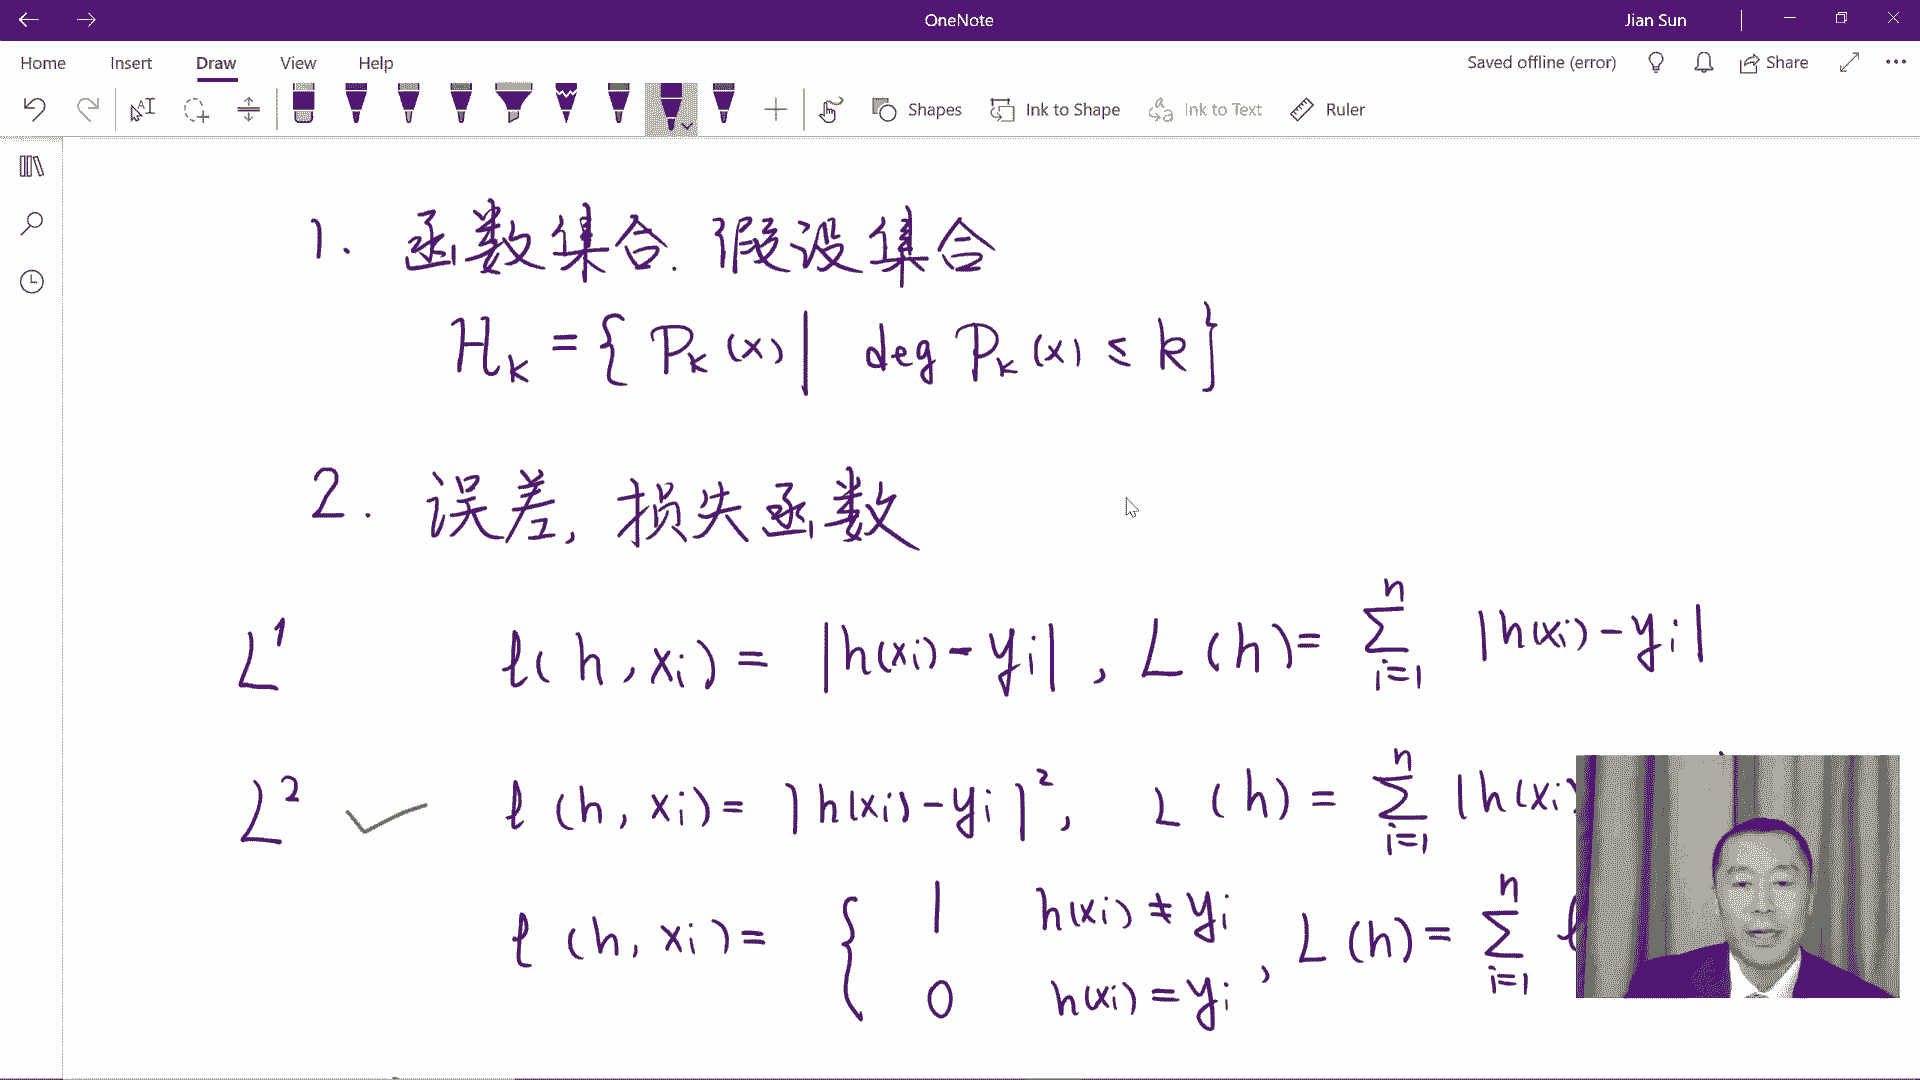 OneNote
Jian Sun
Home Insert Draw View Help
Saved offline (error) Share
Shapes Ink to Shape Ink to Text Ruler
1. 函数集合. 假设集合
H_k = { P_k(x) | deg P_k(x) ≤ k }
2. 误差, 损失函数
L^1 ℓ(h, x_i) = |h(x_i) - y_i|, L(h) = \sum_{i=1}^{n} |h(x_i) - y_i|
L^2 ✓ ℓ(h, x_i) = |h(x_i) - y_i|^2, L(h) = \sum_{i=1}^{n} |h(x_i)
ℓ(h, x_i) = { 1 h(x_i) ≠ y_i
0 h(x_i) = y_i , L(h) = \sum_{i=1}^{n} ℓ